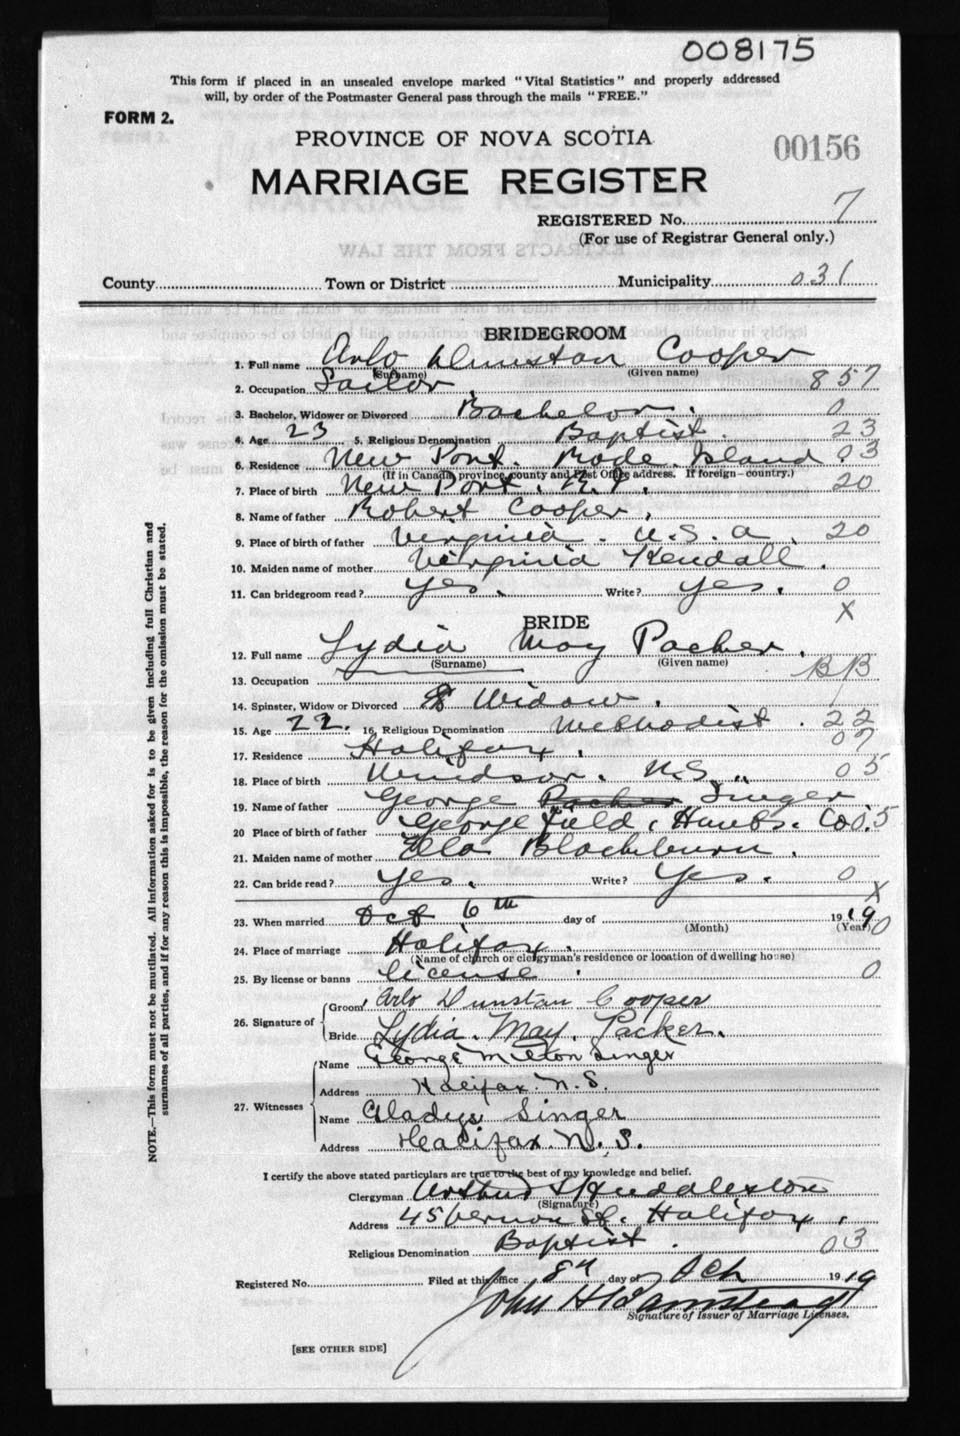 008175
This form if placed in an unsealed envelope marked "Vital Statistics" and properly addressed
will, by order of the Postmaster General pass through the mails "FREE."
FORM 2.
PROVINCE OF NOVA SCOTIA
00156
MARRIAGE REGISTER
REGISTERED No. 7
(For use of Registrar General only.)
EXTRACTS FROM THE LAW
County Town or District Municipality 031
BRIDEGROOM
1. Full name Arlo Dunstan Cooper
(Surname) (Given name)
2. Occupation Sailor 857
3. Bachelor, Widower or Divorced Bachelor. 0
4. Age 23 5. Religious Denomination Baptist. 23
6. Residence New Port. Rode Island. 03
(If in Canada province, county and Post Office address. If foreign—country.)
7. Place of birth New Port. 20
8. Name of father Robert Cooper.
9. Place of birth of father Verginia. U.S.a. 20
10. Maiden name of mother Verginia Kendall.
11. Can bridegroom read? yes. Write? yes. 0
X
BRIDE
12. Full name Lydia May Packer.
(Surname) (Given name)
13. Occupation BB
14. Spinster, Widow or Divorced Widow.
15. Age 22. 16. Religious Denomination Methodist. 22
17. Residence Halifax. 07
18. Place of birth Windsor. N.S. 05
19. Name of father George Packer Singer
20 Place of birth of father Georgefield, Hants. Co. 05
21. Maiden name of mother Ella Blackburn.
22. Can bride read? yes. Write? Yes. 0
X
23. When married Oct 6th day of 1919
(Month) (Year) 0
24. Place of marriage Halifax.
(Name of church or clergyman's residence or location of dwelling house)
25. By license or banns license. 0
26. Signature of Groom Arlo Dunstan Cooper
Bride Lydia. May. Packer.
27. Witnesses Name George Milton Singer
Address Halifax. N.S.
Name Gladys Singer
Address Halifax N.S.
I certify the above stated particulars are true to the best of my knowledge and belief.
Clergyman Arthur Huddleston
(Signature)
Address 45 Vernon St. Halifax.
Religious Denomination Baptist. 03
Registered No. Filed at this office 8th day of Oct 1919
John H Barnstead
Signature of Issuer of Marriage Licenses.
[SEE OTHER SIDE]
NOTE.—This form must not be mutilated. All information asked for is to be given including full Christian and
surnames of all parties, and if for any reason this is impossible, the reason for the omission must be stated.